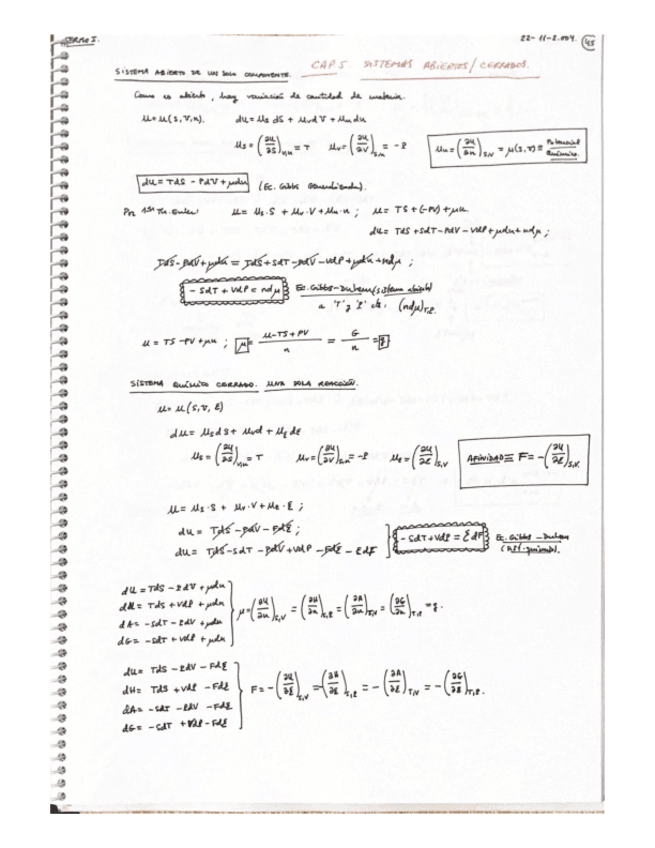 TERMO I. 22-11-2.004. 45
CAP 5. SISTEMAS ABIERTOS/CERRADOS.
SISTEMA ABIERTO DE UN SOLO COMPONENTE.
Como es abierto, hay variación de cantidad de materia.
u = u(s, v, n). du = us ds + uv dv + un dn
us = (∂u/∂s)v,n = T uv = (∂u/∂v)s,n = -P un = (∂u/∂n)s,v = μ(s,v) ≡ Potencial Químico.
du = Tds - Pdv + μdn (Ec. Gibbs Generalizada).
Por 1er Th. Euler: u = us·s + uv·v + un·n ; u = TS + (-PV) + μn
du = Tds + sdT - Pdv - vdP + μdn + ndμ ;
Tds - Pdv + μdn = Tds + sdT - Pdv - vdP + μdn + ndμ ;
- SdT + VdP = ndμ Ec. Gibbs-Duhem (sistema abierto)
a 'T' y 'P' cte. (ndμ)T,P.
u = TS - PV + μn ; μ = u - TS + PV / n = G / n = g
SISTEMA QUÍMICO CERRADO. UNA SOLA REACCIÓN.
u = u(s, v, ξ)
du = us ds + uv d + uξ dξ
us = (∂u/∂s)v,n = T uv = (∂u/∂v)s,n = -P uξ = (∂u/∂ξ)s,v AFINIDAD ≡ F = -(∂u/∂ξ)s,v.
u = us·s + uv·v + uξ·ξ ;
du = Tds - Pdv - Fdξ ;
du = Tds - sdT - Pdv + vdP - Fdξ - ξdF
- SdT + VdP = ξdF Ec. Gibbs - Duhem
du = Tds - Pdv + μdn
dH = Tds + vdP + μdn
dA = -sdT - Pdv + μdn
dG = -sdT + vdP + μdn
μ = (∂u/∂n)s,v = (∂H/∂n)s,P = (∂A/∂n)T,v = (∂G/∂n)T,P = g.
du = Tds - Pdv - Fdξ
dH = Tds + vdP - Fdξ
dA = -sdT - Pdv - Fdξ
dG = -sdT + vdP - Fdξ
F = -(∂u/∂ξ)s,v = -(∂H/∂ξ)s,P = -(∂A/∂ξ)T,v = -(∂G/∂ξ)T,P.